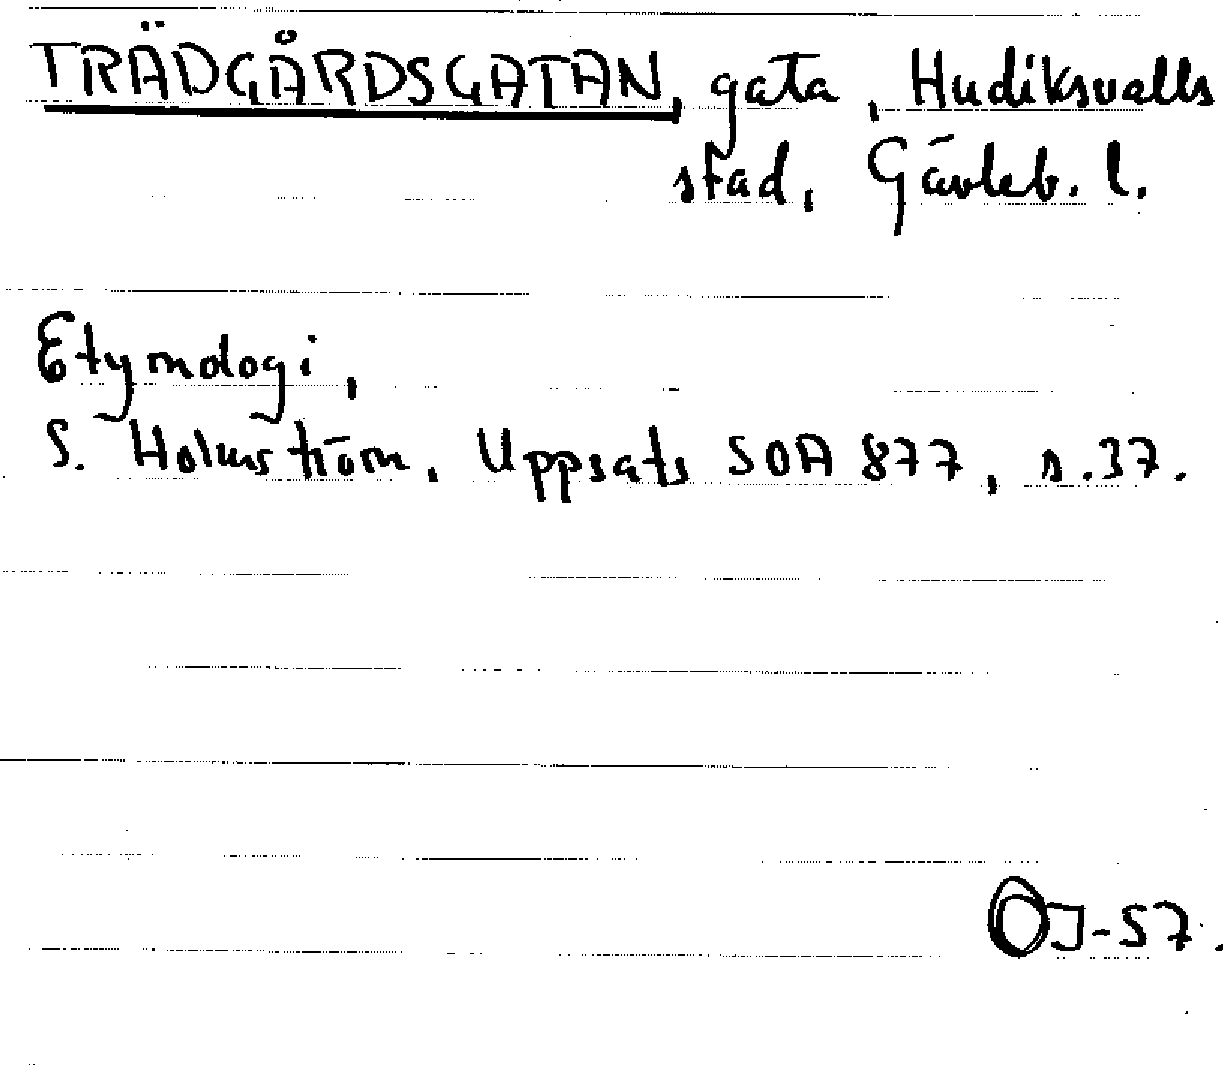 TRÄDGÅRDSGATAN, gata, Hudiksvalls
stad, Gävleb. l.
Etymologi,
S. Holmström, Uppsats SOA 877, s. 37.
OJ-57.